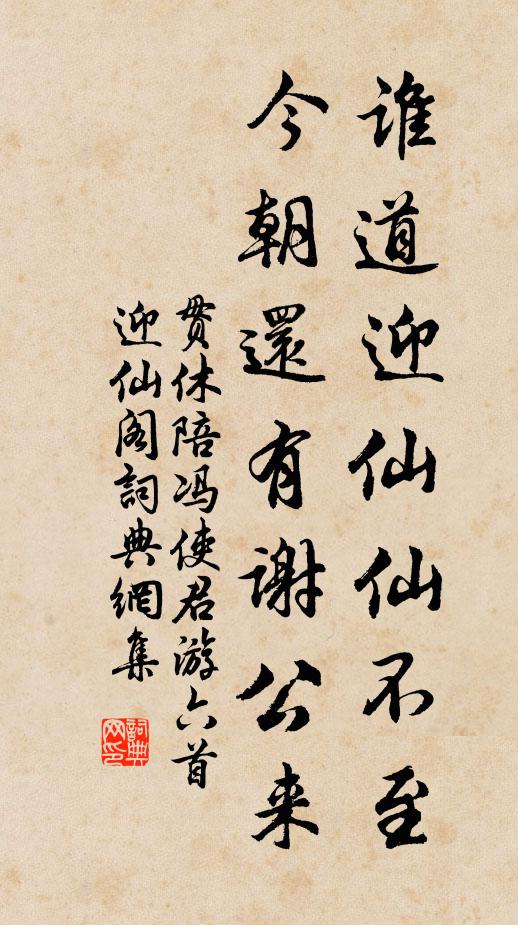 誰道迎仙仙不至
今朝還有謝公来
貫休陪馮使君游六首
迎仙阁詞典網集
詞典
网印